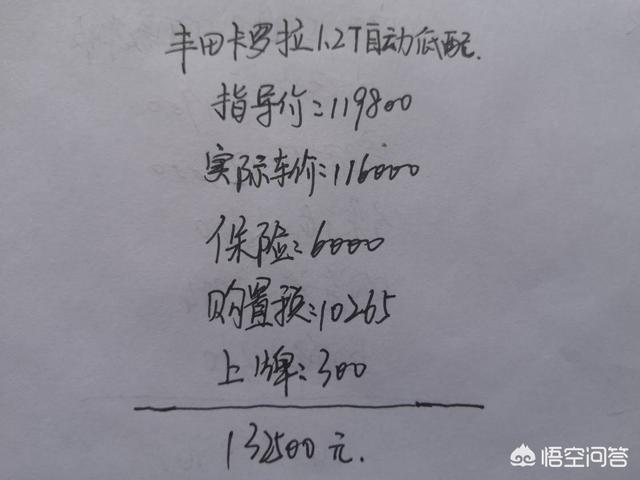 丰田卡罗拉1.2T自动低配.
指导价:119800
实际车价:116000
保险:6000
购置预:10265
上牌:300
132500元.
悟空问答